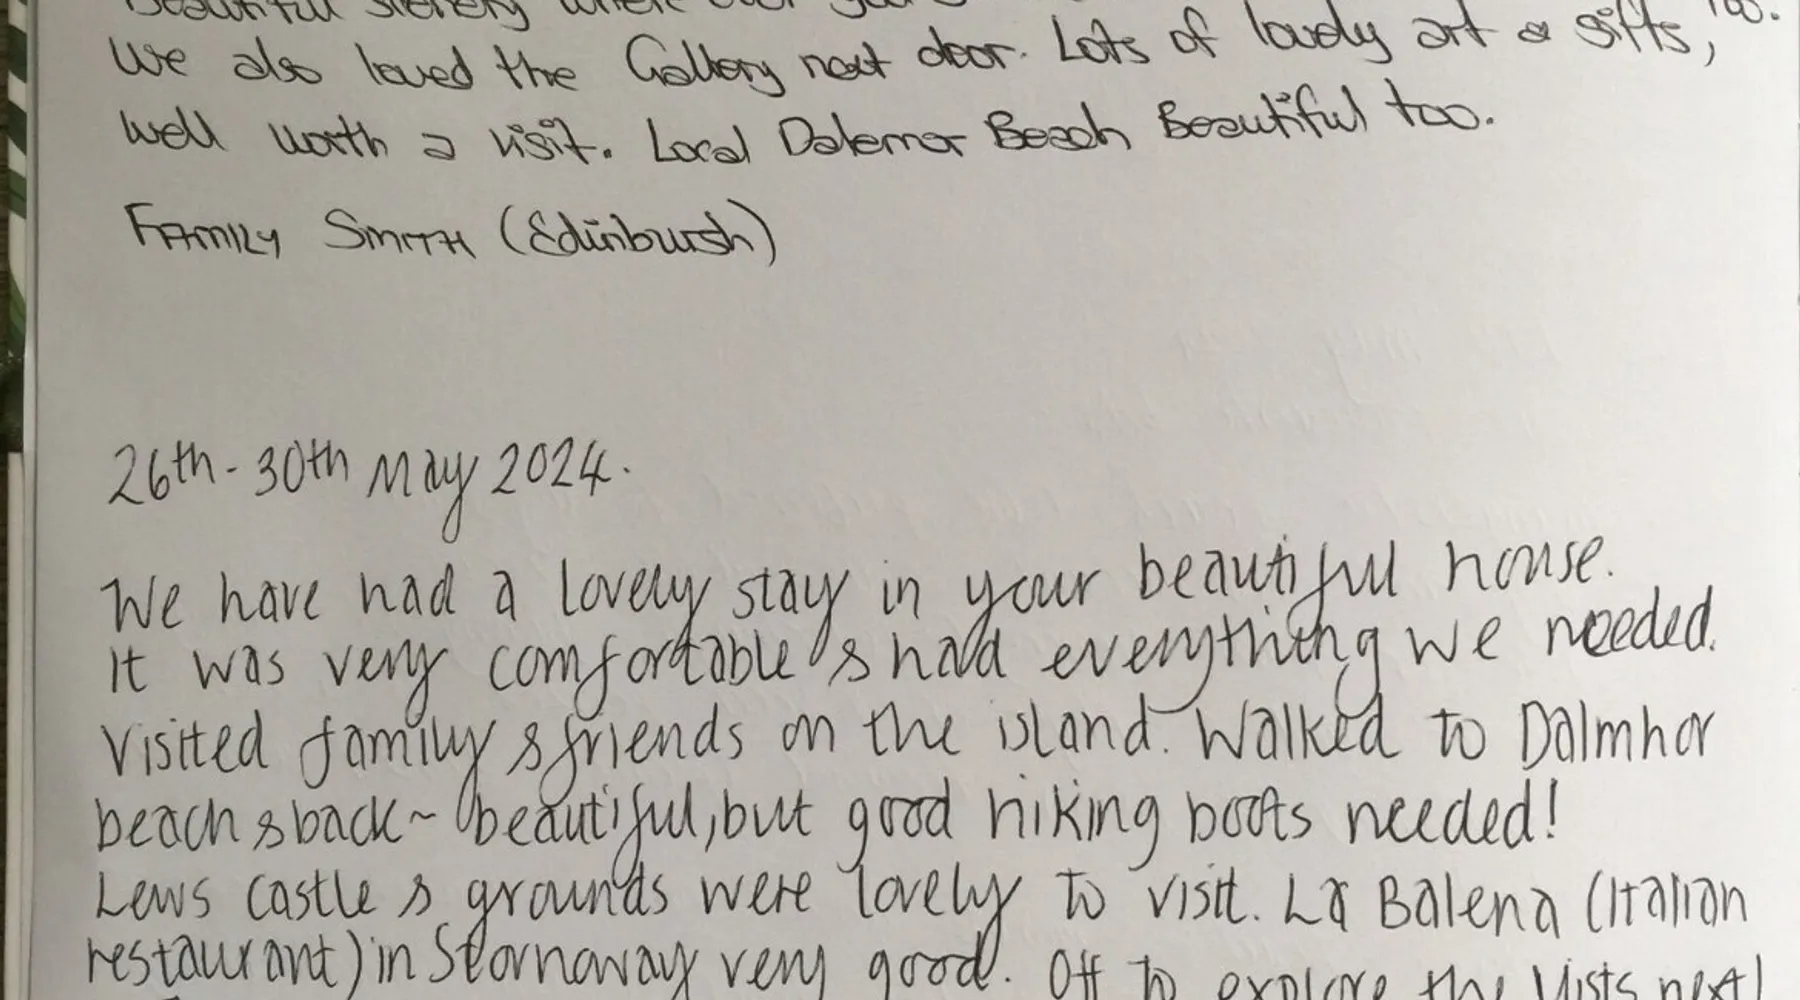 Beautiful scenery where ever you
too.
We also loved the Gallery next door. Lots of lovely art & gifts,
well worth a visit. Local Dalemor Beach Beautiful too.
FAMILY SMITH (Edinburgh)
26th - 30th May 2024.
We have had a lovely stay in your beautiful house.
It was very comfortable & had everything we needed.
Visited family & friends on the island. Walked to Dalmhor
beach & back ~ beautiful, but good hiking boots needed!
Lews Castle & grounds were lovely to visit. La Balena (Italian
restaurant) in Stornoway very good. Off to explore the Uists next!